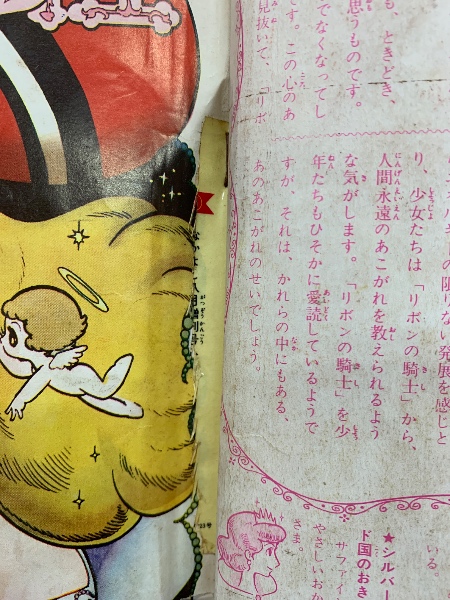 も、ときどき、
思うものです。
でなくなってし
です。この心のあ
見抜いて、「リボ
の限りない発展を感じと
り、少女たちは「リボンの騎士」から、
人間永遠のあこがれを教えられるよう
な気がします。「リボンの騎士」を少
年たちもひそかに愛読しているようで
すが、それは、かれらの中にもある、
あのあこがれのせいでしょう。
いる。
★シルバー
ド国のおき
サファイ
やさしいおか
さま。